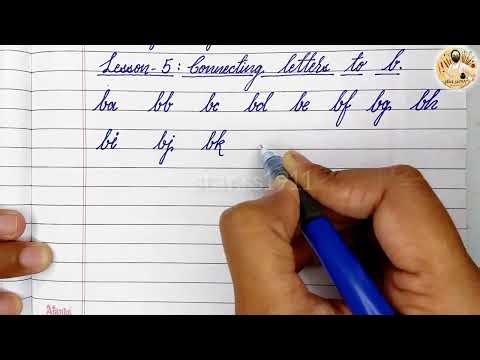 Lesson-5: Connecting letters to b.
ba bb bc bd be bf bg bh
bi bj bk